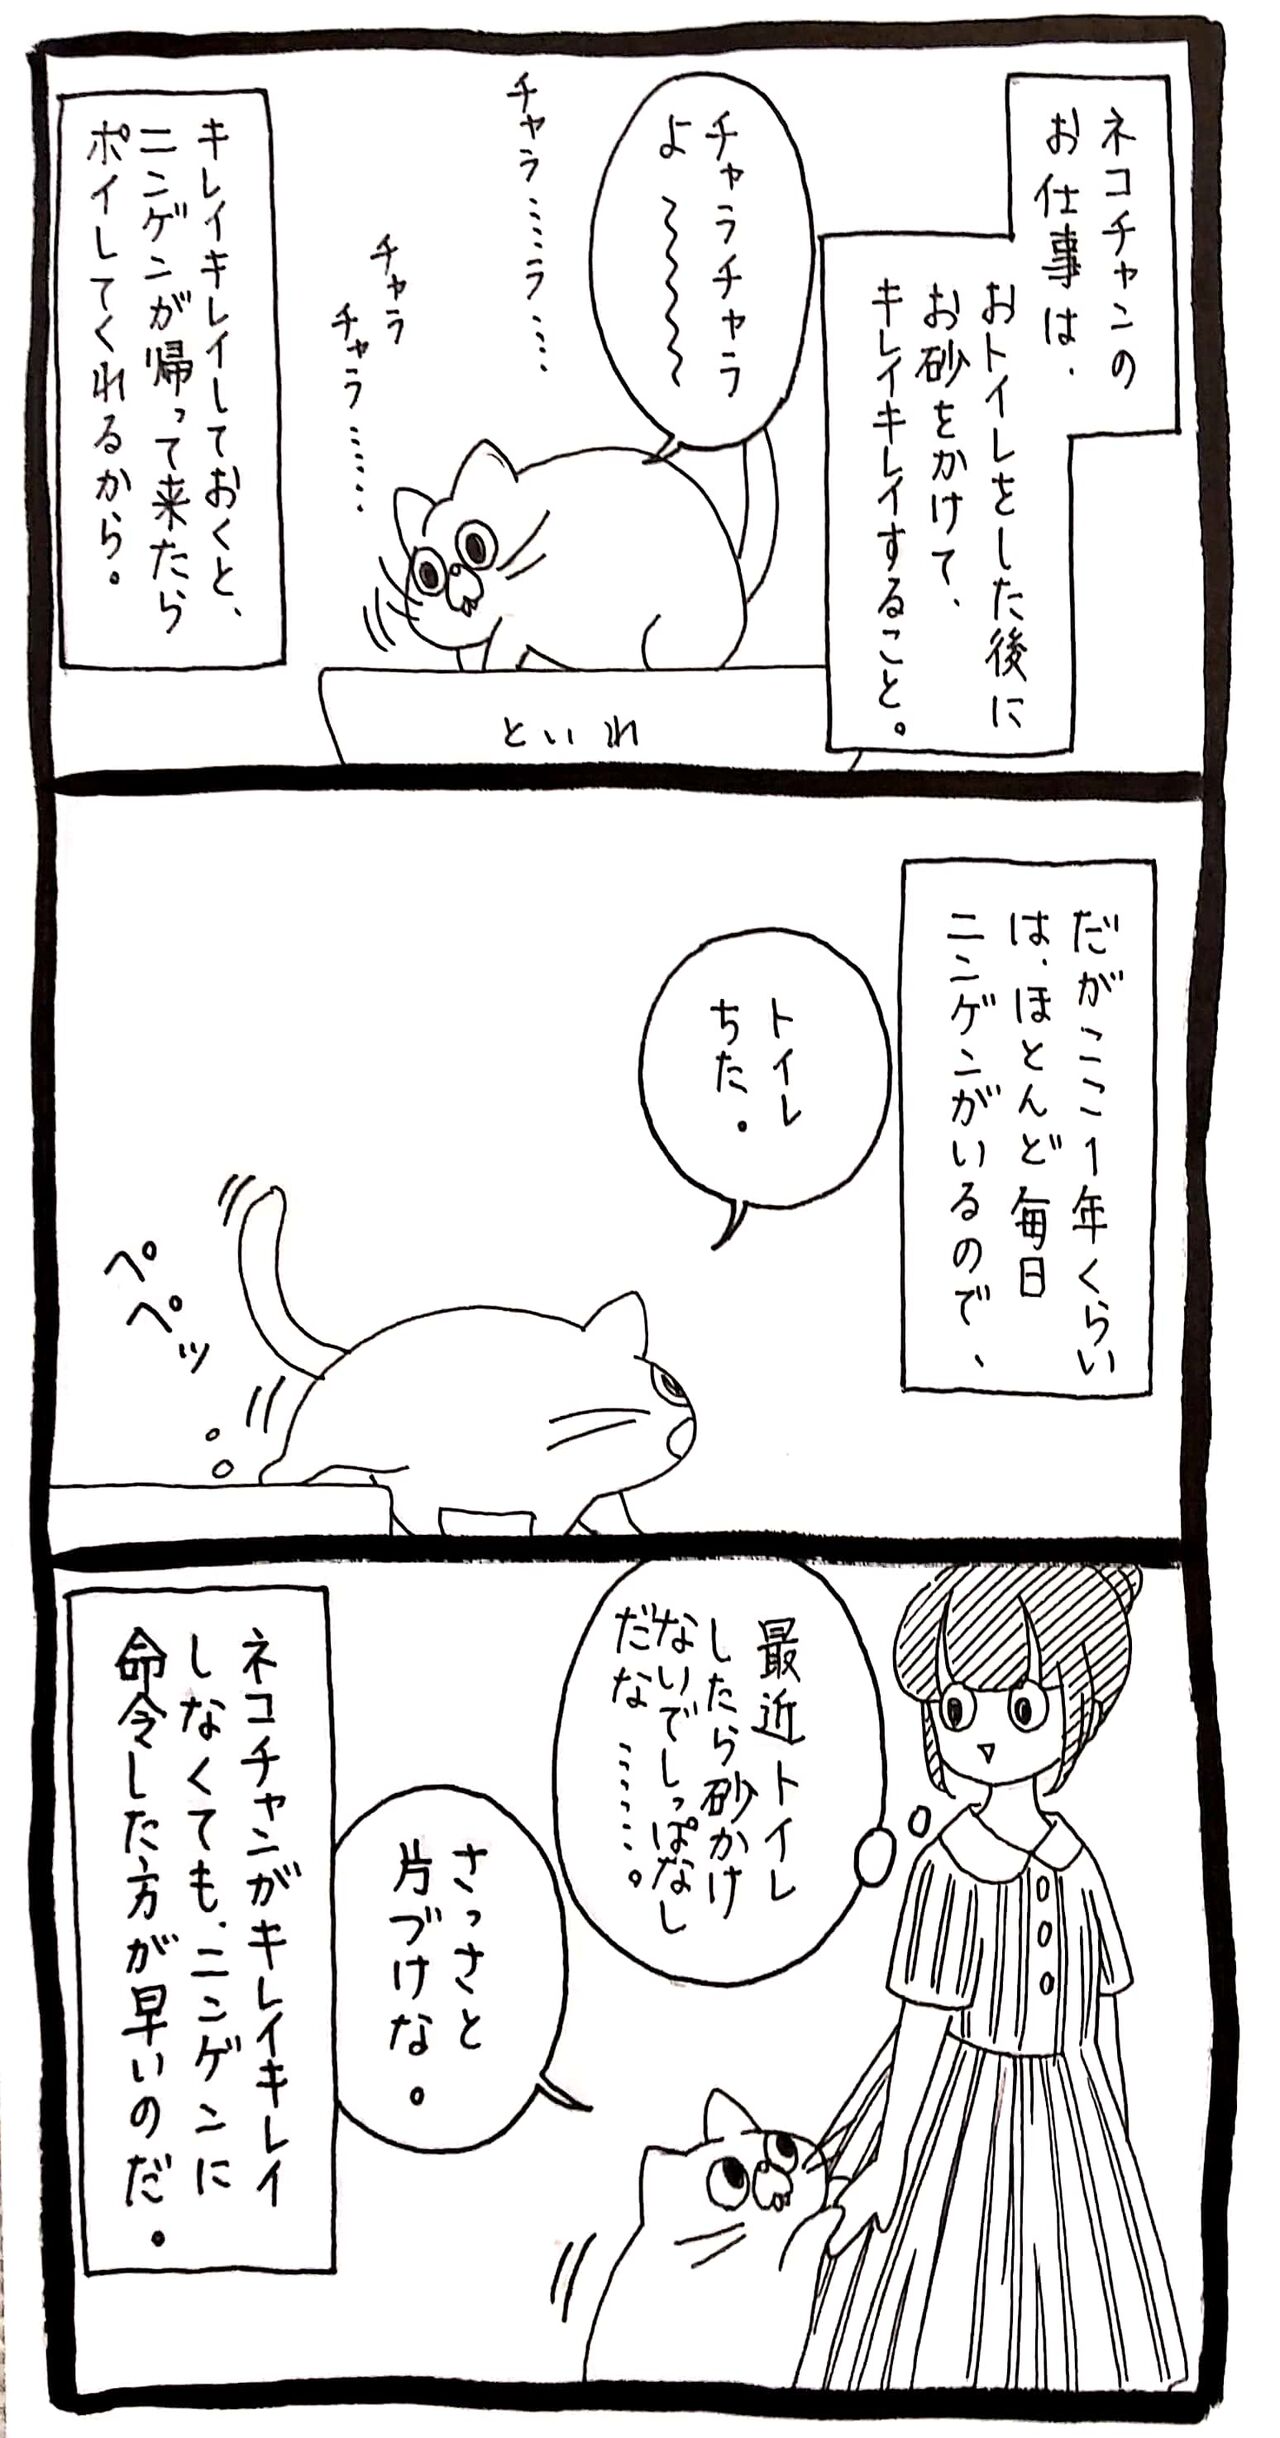 ネコチャンの
お仕事は、
おトイレをした後に
お砂をかけて、
キレイキレイすること。
チャラチャラ
よ〜〜〜〜
チャラ……ラ…
チャラ
チャラ……
キレイキレイしておくと、
ニンゲンが帰って来たら
ポイしてくれるから。
といれ
だがここ1年くらい
は、ほとんど毎日
ニンゲンがいるので、
トイレ
ちた。
ペペッ
最近トイレ
したら砂かけ
ないでしっぱなし
だな……。
さっさと
片づけな。
ネコチャンがキレイキレイ
しなくても、ニンゲンに
命令した方が早いのだ。